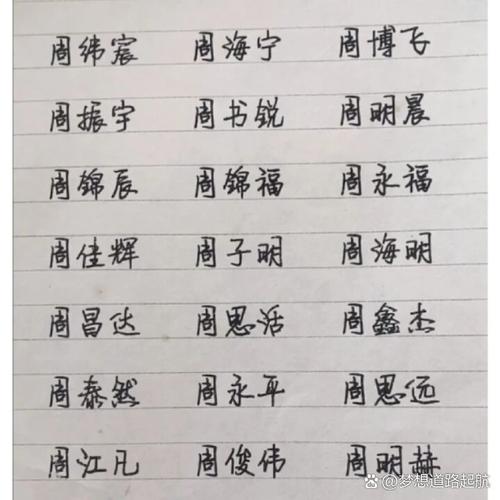 周纬宸 周海宁 周博飞
周振宇 周书锐 周明晨
周锦辰 周锦福 周永福
周佳辉 周子明 周海明
周昌达 周思活 周鑫杰
周泰然 周永平 周思远
周江凡 周俊伟 周明赫
@梦想道路起航